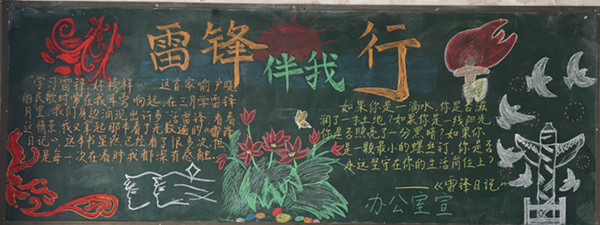 雷锋伴我行
学习雷锋,好榜样……这首家俞户晓
的民歌时常在我耳旁响起,在三月学雷锋
月里,我们身边涌现出许多"活雷锋",看着
这情景,我又拿起那本看了无数遍的《雷锋
日记》。这本书虽然已经看了很多次,但
是每一次在看时我都深有感触。
如果你是一滴水,你是否滋
润了一寸土地?如果你是一线阳光,
你是否照亮了一分黑暗?如果你
是一颗最小的螺丝钉,你是否
永远坚守在你的生活岗位上?
——《雷锋日记》
办公室宣